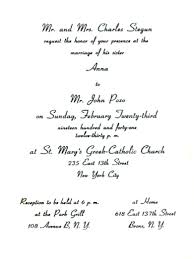 Mr. and Mrs. Charles Stegun
request the honor of your presence at the
marriage of his sister
Anna
to
Mr. John Pozo
on Sunday, February Twenty-third
nineteen hundred and forty-one
twelve-thirty p. m.
at St. Mary's Greek-Catholic Church
235 East 13th Street
New York City
Reception to be held at 6 p. m.
at the Park Grill
108 Avenue B, N. Y.
at Home
618 East 137th Street
Bronx, N. Y.